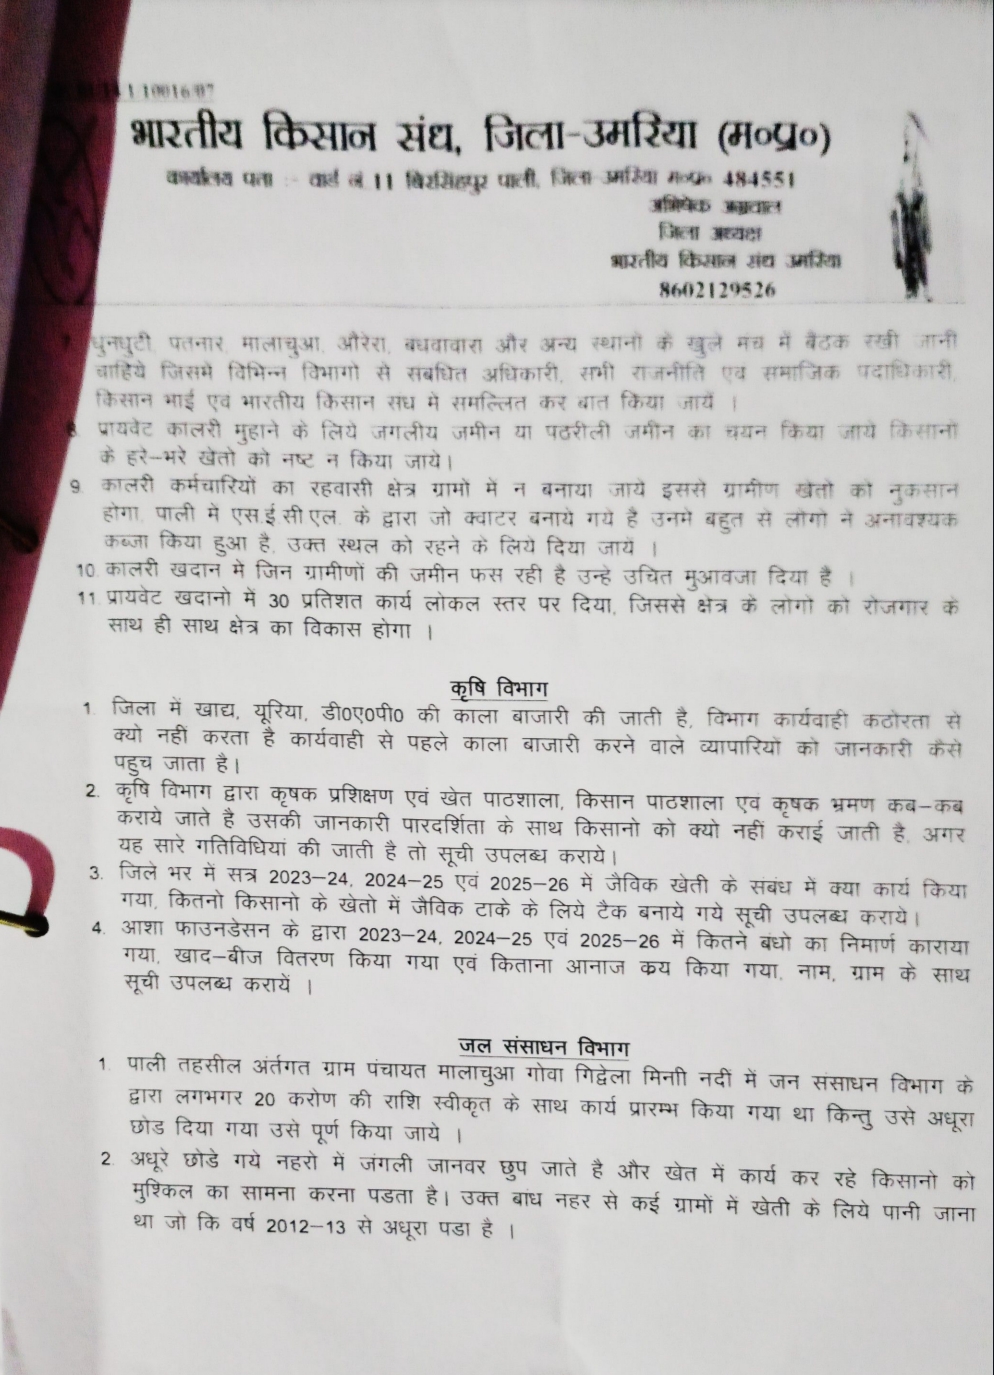 1 10016/07
भारतीय किसान संध, जिला-उमरिया (म०प्र०)
कार्यालय पता :- वार्ड नं 11 बिरसिंहपुर पाली, जिला उमरिया म०प्र० 484551
अभिषेक अग्रवाल
जिला अध्यक्ष
भारतीय किसान संध उमरिया
8602129526
7. घुनघुटी, पतनार, मालाचुआ, औरेरा, बधवावारा और अन्य स्थानों के खुले मंच में बैठक रखी जानी
चाहिये जिसमे विभिन्न विभागो से संबधित अधिकारी, सभी राजनीति एवं समाजिक पदाधिकारी,
किसान भाई एवं भारतीय किसान संध मे समल्लित कर बात किया जायें ।
8. प्रायवेट कालरी मुहाने के लिये जगलीय जमीन या पठरीली जमीन का चयन किया जाये किसानों
के हरे–भरे खेतो को नष्ट न किया जाये।
9. कालरी कर्मचारियों का रहवासी क्षेत्र ग्रामों में न बनाया जाये इससे ग्रामीण खेतो को नुकसान
होगा, पाली में एस.ई.सी.एल. के द्वारा जो क्वाटर बनाये गये है उनमे बहुत से लोगो ने अनावश्यक
कब्जा किया हुआ है, उक्त स्थल को रहने के लिये दिया जाये ।
10. कालरी खदान मे जिन ग्रामीणों की जमीन फस रही है उन्हे उचित मुआवजा दिया है ।
11. प्रायवेट खदानो में 30 प्रतिशत कार्य लोकल स्तर पर दिया, जिससे क्षेत्र के लोगो को रोजगार के
साथ ही साथ क्षेत्र का विकास होगा ।
कृषि विभाग
1. जिला में खाद्य, यूरिया, डी0ए0पी0 की काला बाजारी की जाती है, विभाग कार्यवाही कठोरता से
क्यो नहीं करता है कार्यवाही से पहले काला बाजारी करने वाले व्यापारियों को जानकारी कैसे
पहुच जाता है।
2. कृषि विभाग द्वारा कृषक प्रशिक्षण एवं खेत पाठशाला, किसान पाठशाला एवं कृषक भ्रमण कब–कब
कराये जाते है उसकी जानकारी पारदर्शिता के साथ किसानो को क्यो नहीं कराई जाती है, अगर
यह सारे गतिविधियां की जाती है तो सूची उपलब्ध कराये।
3. जिले भर में सत्र 2023–24, 2024–25 एवं 2025–26 में जैविक खेती के संबंध में क्या कार्य किया
गया, कितनो किसानो के खेतो में जैविक टाके के लिये टैक बनाये गये सूची उपलब्ध कराये।
4. आशा फाउनडेसन के द्वारा 2023–24, 2024–25 एवं 2025–26 में कितने बंधो का निमार्ण काराया
गया, खाद–बीज वितरण किया गया एवं किताना आनाज क्रय किया गया, नाम, ग्राम के साथ
सूची उपलब्ध करायें ।
जल संसाधन विभाग
1. पाली तहसील अंर्तगत ग्राम पंचायत मालाचुआ गोवा गिद्वेला मिनाी नदीं में जन संसाधन विभाग के
द्वारा लगभगर 20 करोण की राशि स्वीकृत के साथ कार्य प्रारम्भ किया गया था किन्तु उसे अधूरा
छोड दिया गया उसे पूर्ण किया जाये ।
2. अधूरे छोडे गये नहरो में जंगली जानवर छुप जाते है और खेत में कार्य कर रहे किसानो को
मुश्किल का सामना करना पडता है। उक्त बांध नहर से कई ग्रामों में खेती के लिये पानी जाना
था जो कि वर्ष 2012–13 से अधूरा पडा है ।